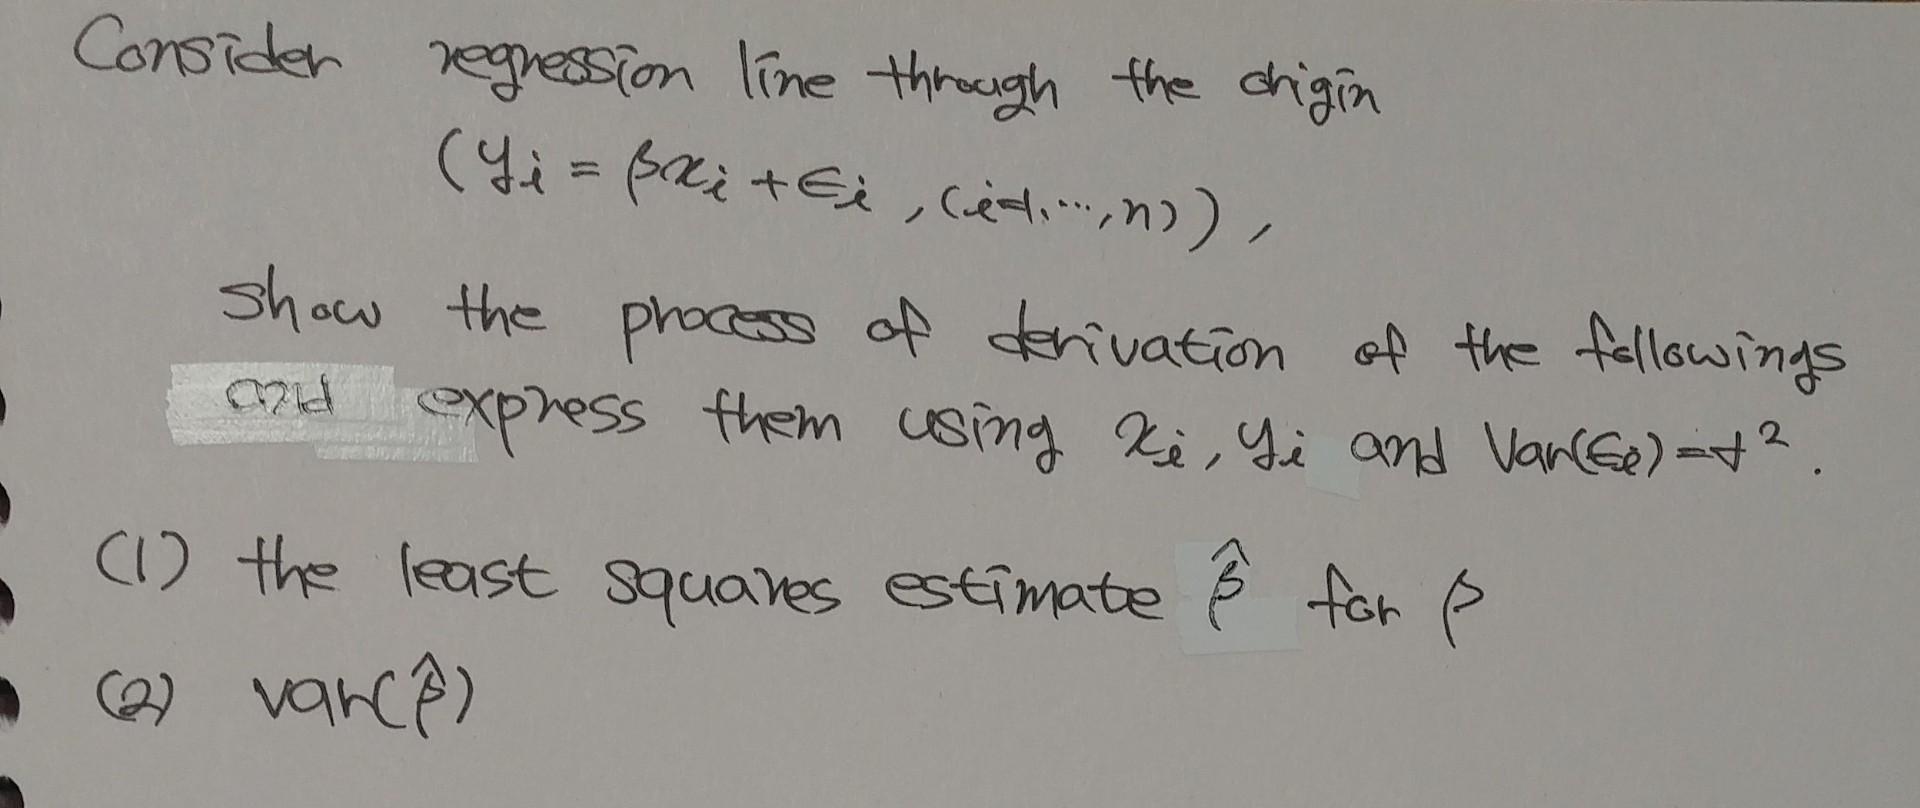 Consider regression line through the origin
(yᵢ = βxᵢ + ϵᵢ, (i=1,…,n)),
show the process of derivation of the followings
and express them using xᵢ, yᵢ and Var(ϵᵢ) = σ².
(1) the least squares estimate β̂ for β
(2) var(β̂)